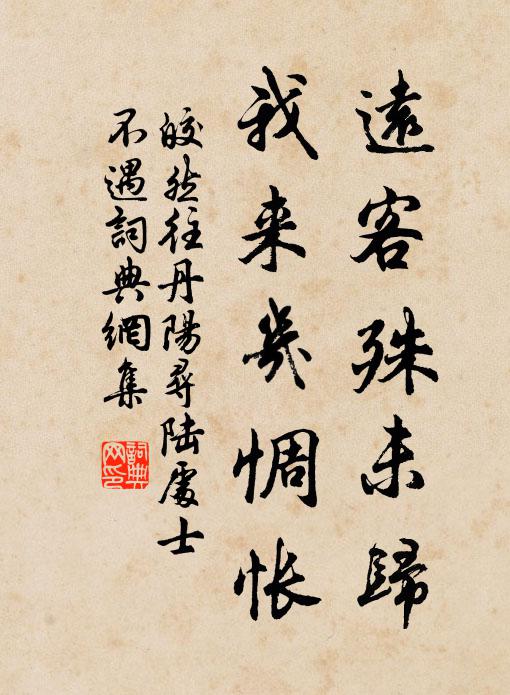 遠客殊未歸
我来幾惆怅
皎然往丹陽尋陆處士
不遇詞典網集
詞典
网印